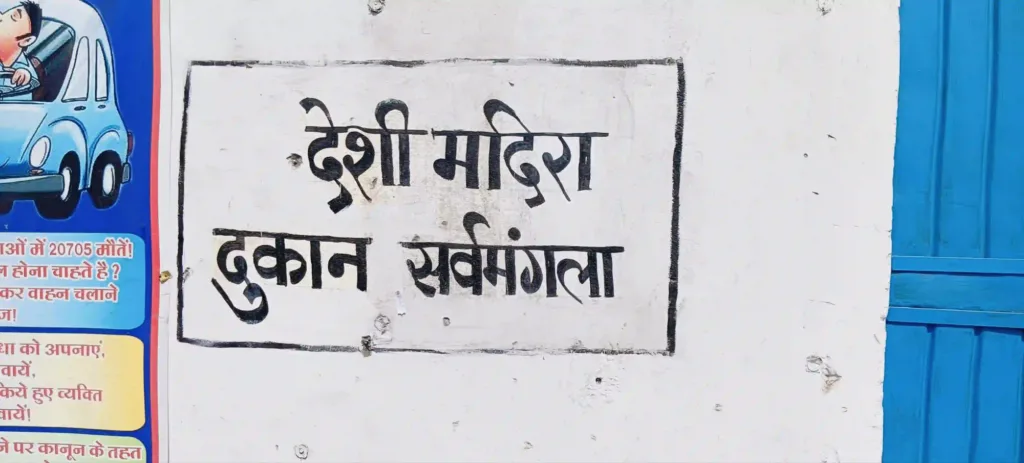 देशी मदिरा
दुकान सर्वमंगला
में 20705 मौतें!
होना चाहते है ?
कर वाहन चलाने
को अपनाएं,
किये हुए व्यक्ति
पर कानून के तहत